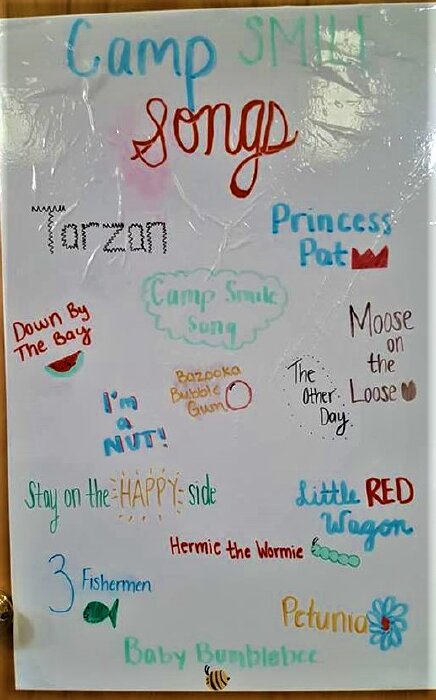 Camp SMILE
Songs
Tarzan
Princess
Pat
Camp Smile
Song
Down By
The Bay
Moose
on
the
Loose
Bazooka
Bubble
Gum
The
Other
Day
I'm
a
NUT!
Stay on the HAPPY side
Little RED
Wagon
Hermie the Wormie
3 Fishermen
Petunia
Baby Bumblebee